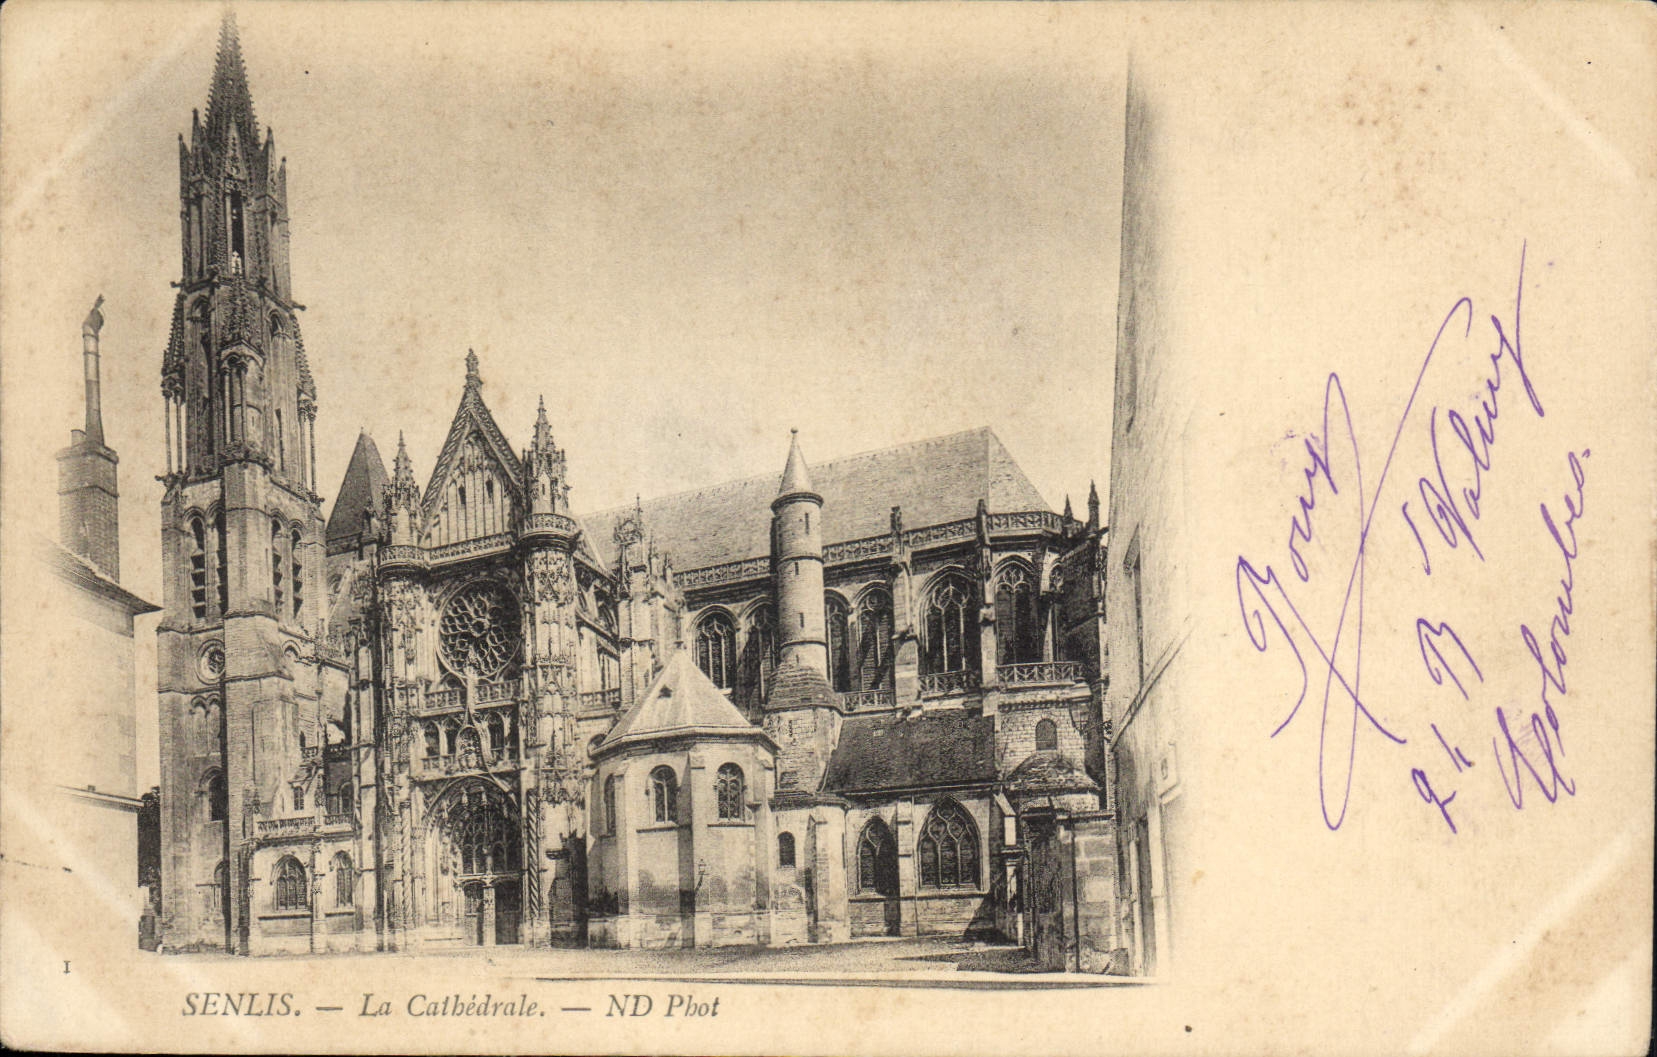 Bouy
24 B d Valmy
Colombes.
1
SENLIS. — La Cathédrale. — ND Phot